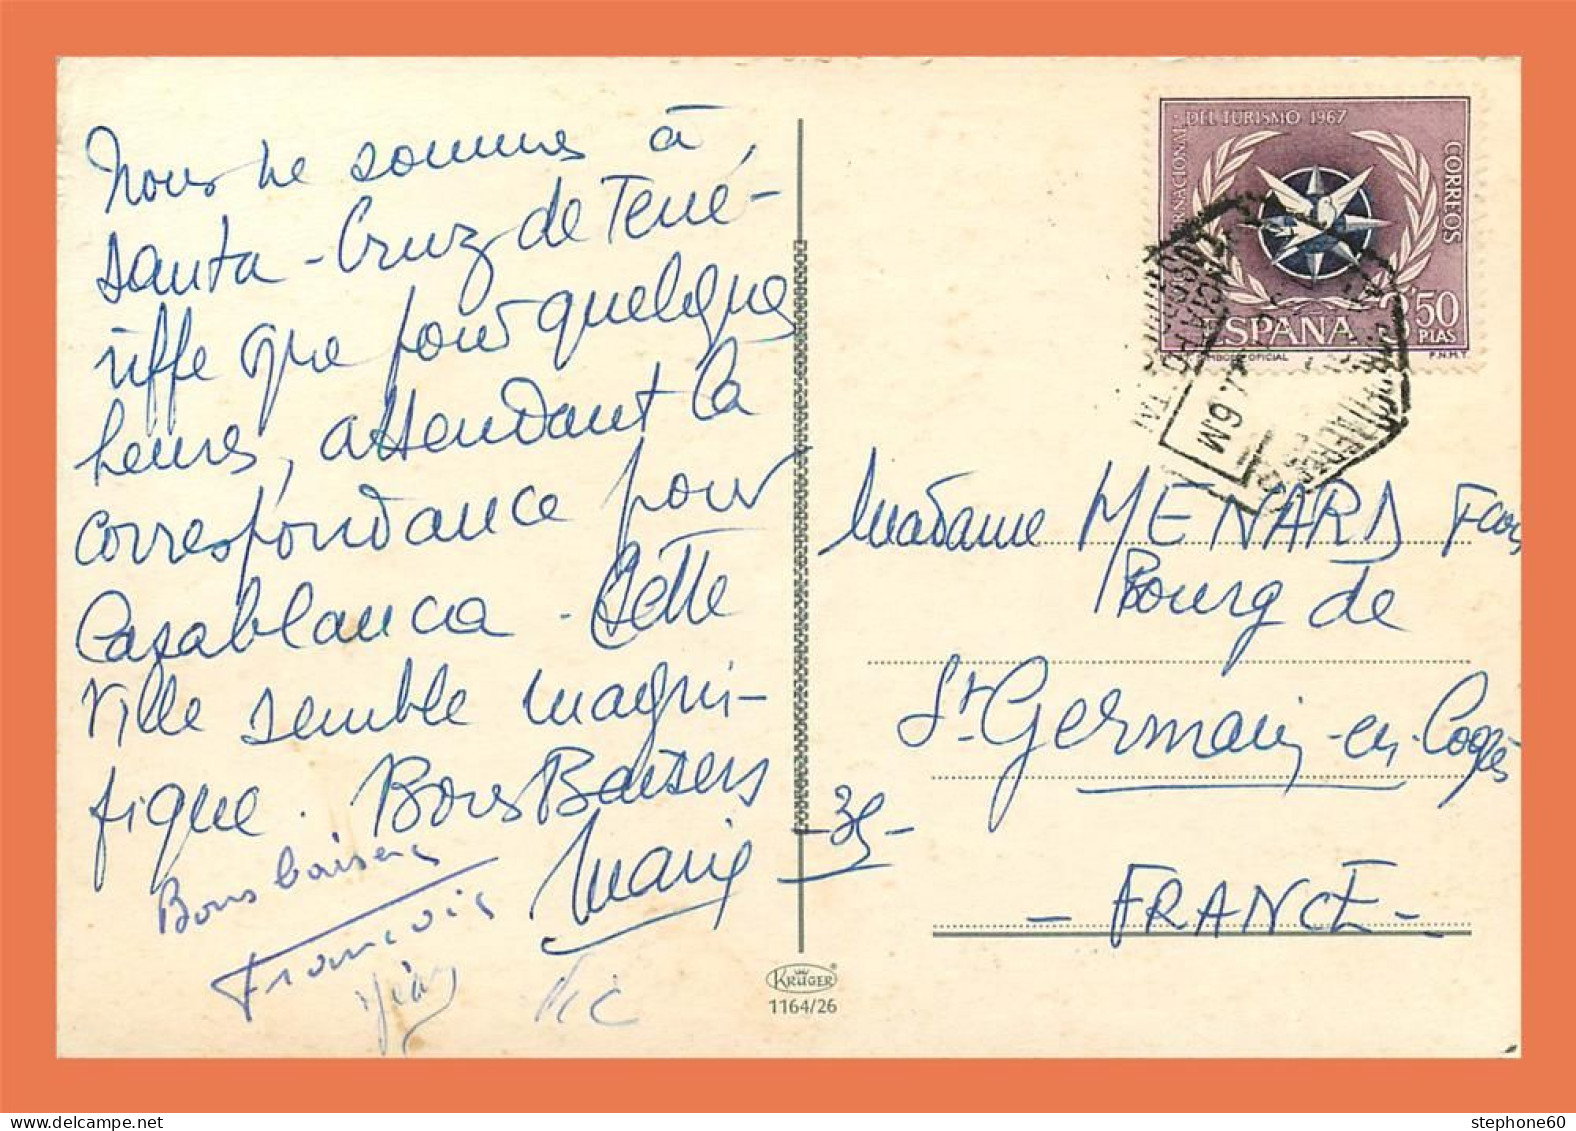 Nous ne sommes à
Santa-Cruz de Téné-
riffe que pour quelques
heures, attendant la
correspondance pour
Casablanca. Cette
ville semble magni-
fique. Bons Baisers
Marie
Bons baisers
François
INTERNACIONAL DEL TURISMO 1967
CORREOS
3,50
PTAS
ESPAÑA
F.N.M.T.
6M
Madame MENARD
Bourg de
St Germain-en-Coglès
-35-
-FRANCE-
KRÜGER
1164/26
stephone60